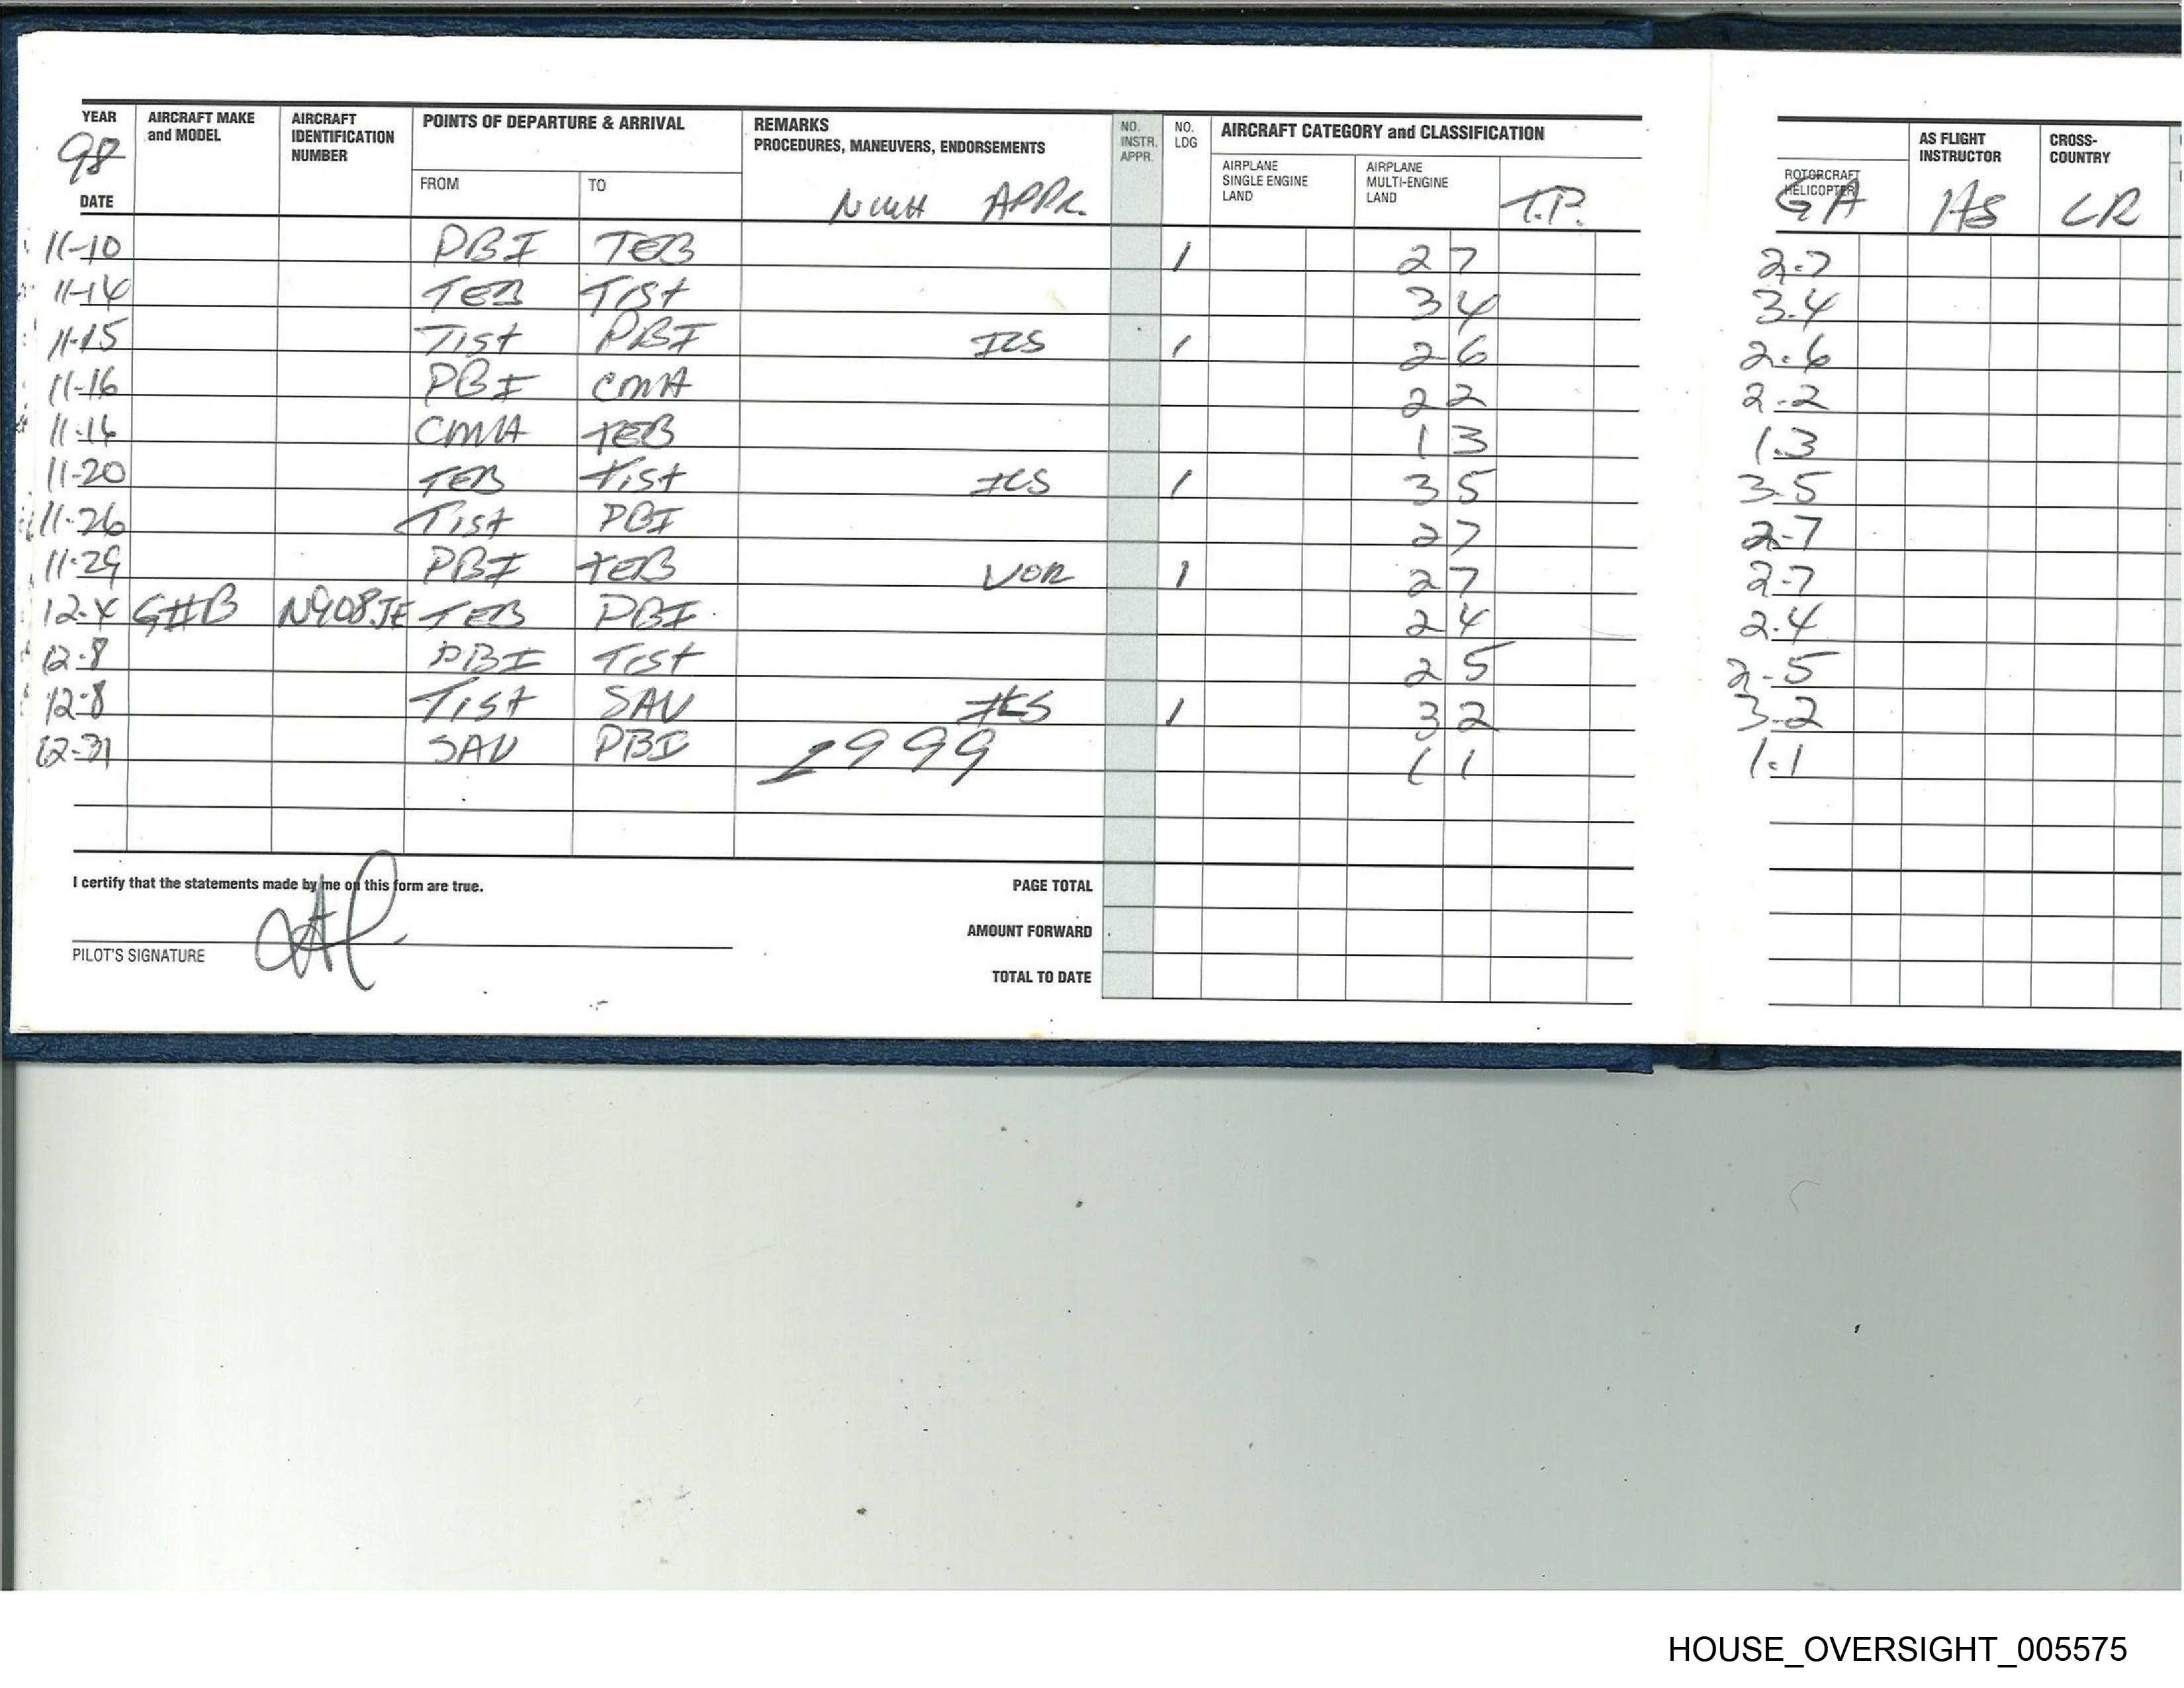 YEAR AIRCRAFT MAKE and MODEL AIRCRAFT IDENTIFICATION NUMBER POINTS OF DEPARTURE & ARRIVAL REMARKS PROCEDURES, MANEUVERS, ENDORSEMENTS NO. INSTR. APPR. NO. LDG AIRCRAFT CATEGORY and CLASSIFICATION AS FLIGHT INSTRUCTOR CROSS-COUNTRY
98 FROM TO AIRPLANE SINGLE ENGINE LAND AIRPLANE MULTI-ENGINE LAND ROTORCRAFT HELICOPTER
DATE APPR. T.P. GA
11-10 PBI TEB 1 2 7 2.7
11-14 TEB Tist 3 4 3.4
11-15 Tist PBI ILS 1 2 6 2.6
11-16 PBI CMH 2 2 2-2
11-16 CMH TEB 1 3 1.3
11-20 TEB Tist ILS 1 3 5 3-5
11-26 Tist PBI 2 7 2-7
11-29 PBI TEB VOR 1 2 7 2-7
12-4 GIIB N908JE TEB PBI 2 4 2.4
12-8 PBI Tist 2 5 2-5
12-8 Tist SAV ILS 1 3 2 3-2
12-31 SAV PBI 1999 1 1 1.1
I certify that the statements made by me on this form are true. PAGE TOTAL
AMOUNT FORWARD
PILOT'S SIGNATURE TOTAL TO DATE
HOUSE_OVERSIGHT_005575